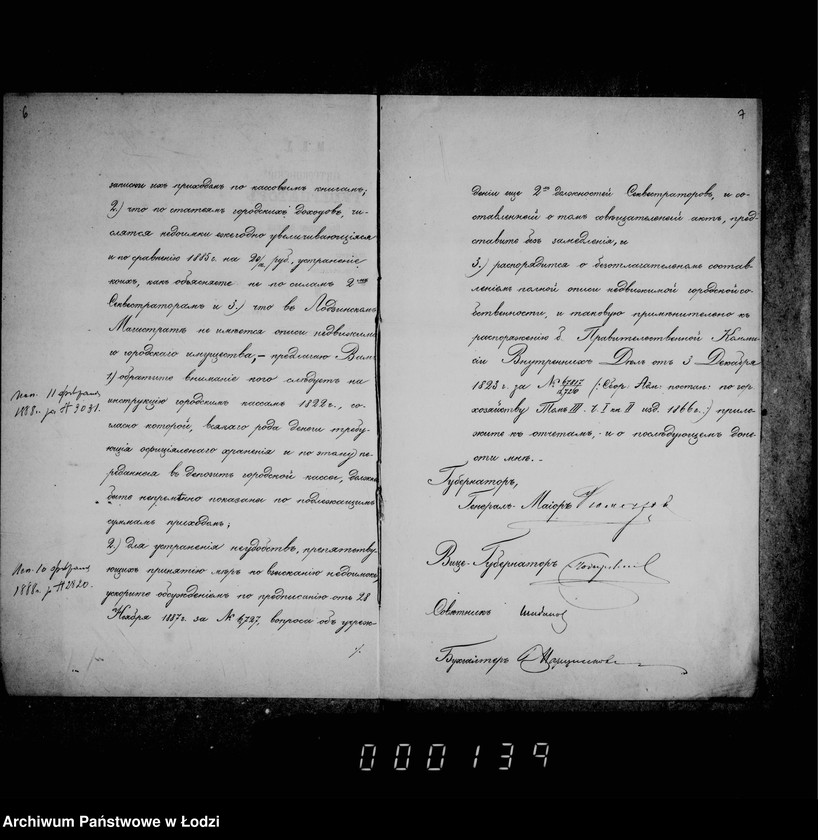 6
записки ихъ приходомъ по кассовымъ книгамъ;
2.) что по статьямъ городскихъ доходовъ, чи-
слятся недоимки ежегодно увеличивающіяся
и по сравненію 1885 г. на руб. устраненіе
коихъ, какъ объясняете не по силамъ 2мъ
Секвестраторамъ и 3.) что въ Лодзинскомъ
Магистратѣ не имѣется описи недвижима-
го городского имущества,— предлагаю Вамъ
1) обратить вниманіе кого слѣдуетъ на
инструкцію городскимъ кассамъ 1822 г., со-
гласно которой, всякаго рода деньги требу-
ющія офиціальнаго храненія и по этому пе-
реданныя въ депозитъ городской кассы, должны
быть непремѣнно показаны по подлежащимъ
суммамъ приходомъ;
2.) для устраненія неудобствъ, препятству-
ющихъ принятію мѣръ по взысканію недоимокъ,
ускорить обсужденіемъ по предписанію отъ 28
Ноября 1887 г. за № 6727, вопроса объ учреж-
Исп. 11 февраля
1888 г. за № 3031.
Исп. 10 февраля
1888 г. за № 2820.
7
деніи еще 2хъ должностей Секвестраторовъ, и со-
ставленный о томъ совѣщательный актъ, пред-
ставить безъ замедленія, и
3.) распорядиться о безотлагательномъ состав-
леніи полной описи недвижимой городской со-
бственности, и таковую примѣнительно къ
распоряженію б. Правительственной Комми-
сіи Внутреннихъ Дѣлъ отъ 3 Декабря
1823 г. за № (: Сбор. Адм. постан. по гор.
хозяйству Томъ III. ч. I кн II изд. 1866 г.:) прило-
жить къ отчетамъ, и о послѣдующемъ доне-
сти мнѣ.—
Губернаторъ,
Генералъ-Маіоръ
Вице-Губернаторъ
Совѣтникъ
Бухгалтеръ
000139
Archiwum Państwowe w Łodzi